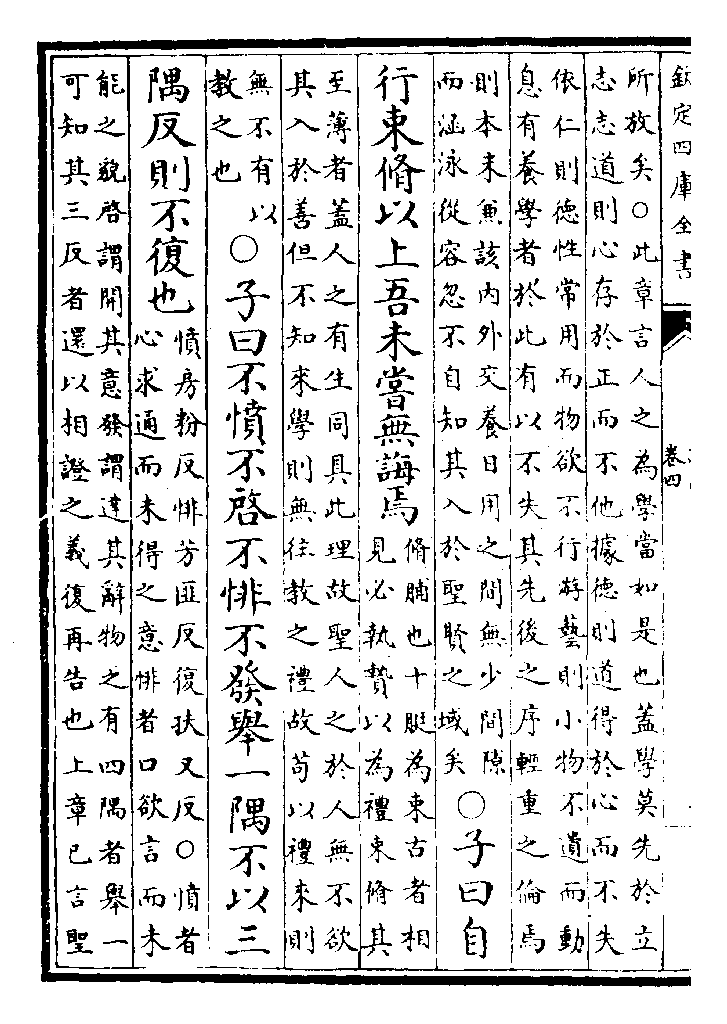 欽定四庫全書
卷四
所放矣○此章言人之為學當如是也蓋學莫先於立
志志道則心存於正而不他據德則道得於心而不失
依仁則德性常用而物欲不行游藝則小物不遺而動
息有養學者於此有以不失其先後之序輕重之倫焉
則本末兼該内外交養日用之間無少間隙
而涵泳從容忽不自知其入於聖賢之域矣
○子曰自
行束脩以上吾未嘗無誨焉
脩脯也十脡為束古者相
見必執贄以為禮束脩其
至薄者蓋人之有生同具此理故聖人之於人無不欲
其入於善但不知來學則無往教之禮故苟以禮來則
無不有以
教之也
○子曰不憤不啓不悱不發舉一隅不以三
隅反則不復也
憤房粉反悱芳匪反復扶又反○憤者
心求通而未得之意悱者口欲言而未
能之貌啓謂開其意發謂達其辭物之有四隅者舉一
可知其三反者還以相證之義復再告也上章已言聖